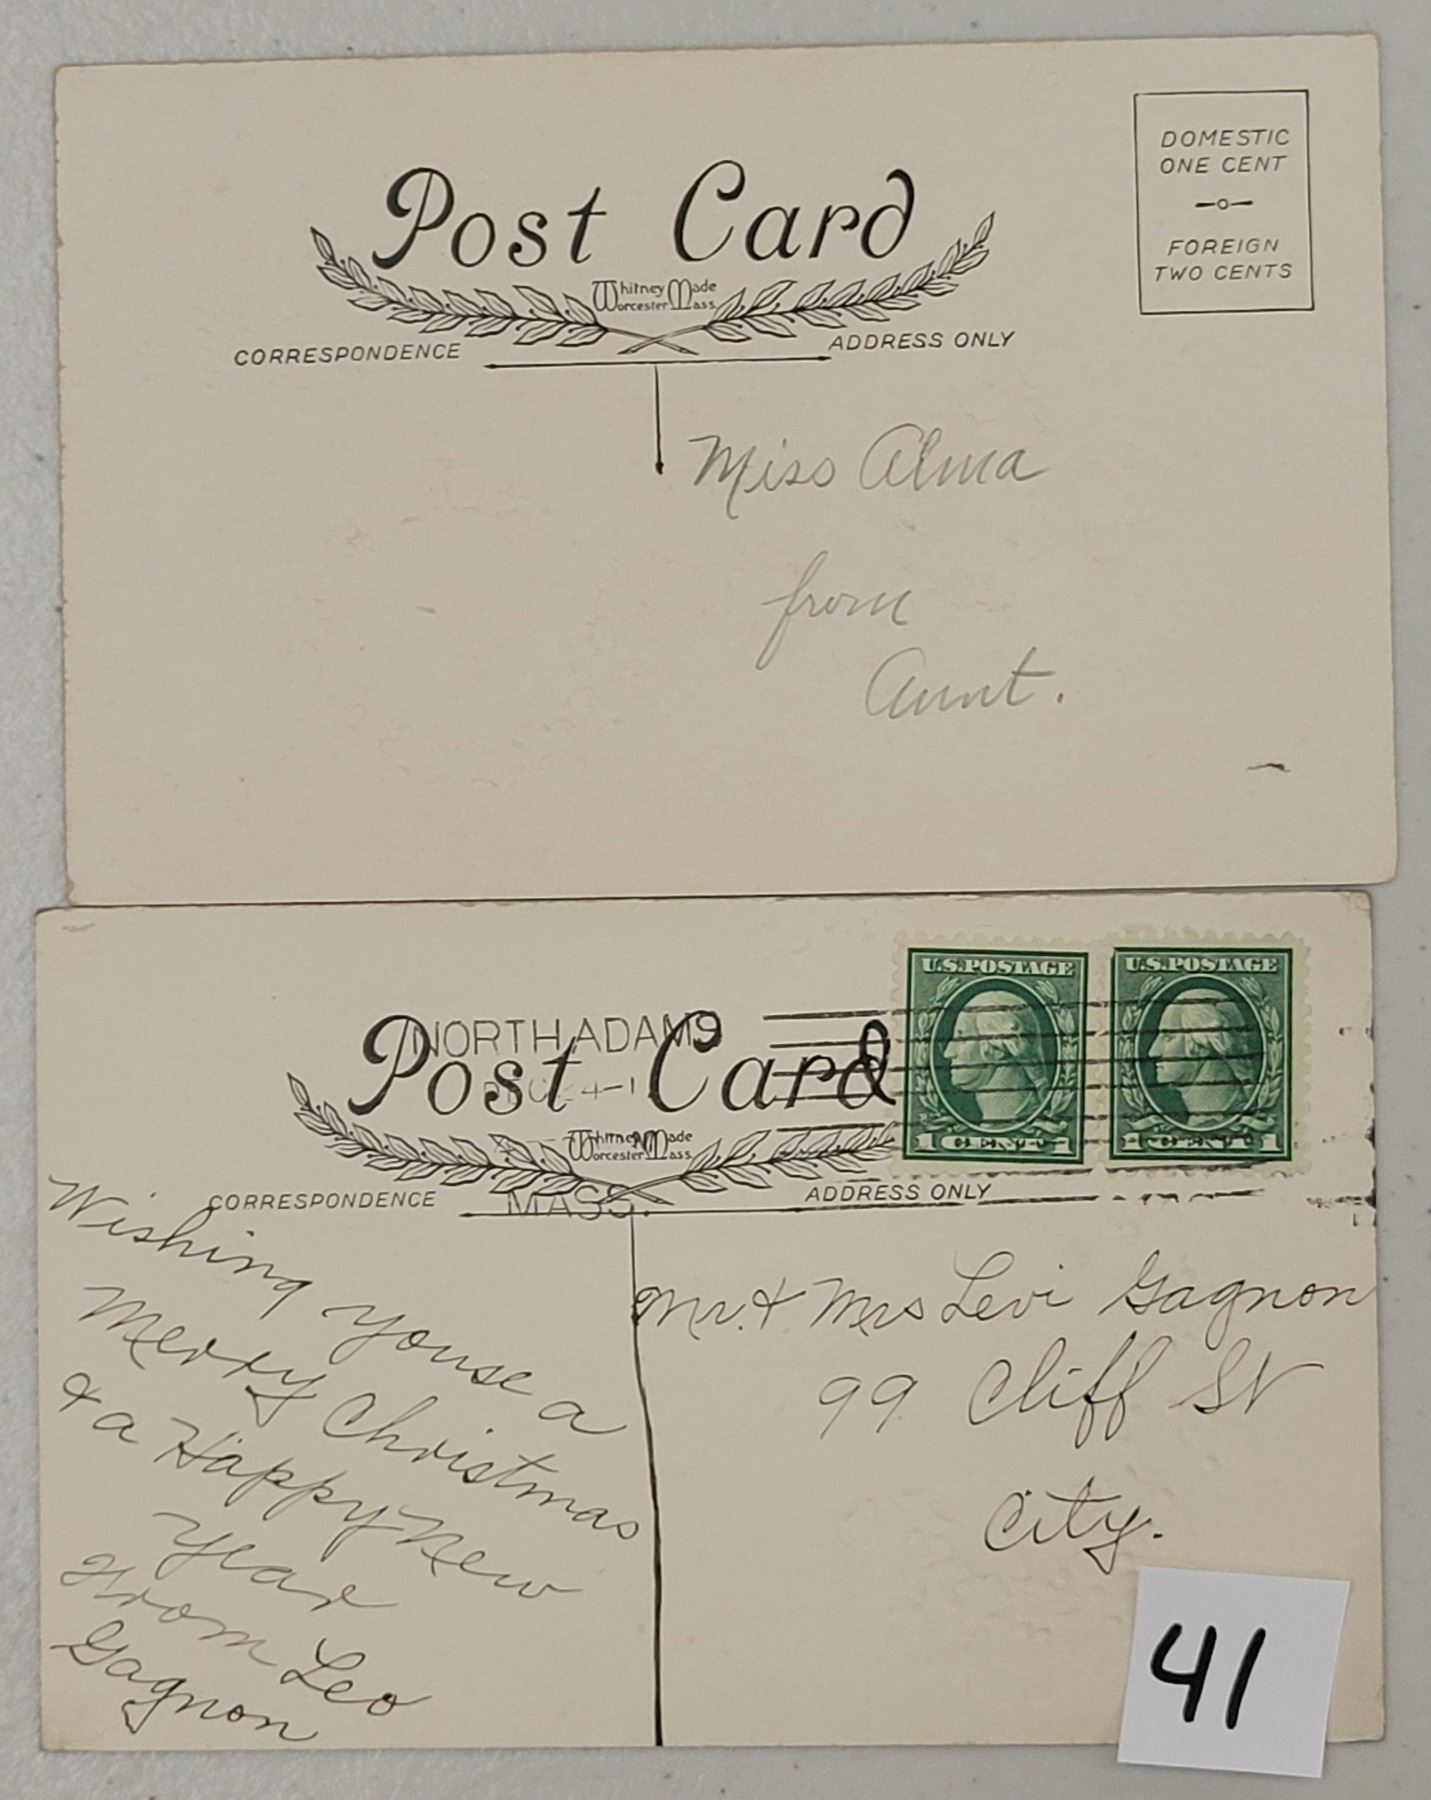 Post Card
Whitney Made
Worcester Mass.
CORRESPONDENCE
ADDRESS ONLY
DOMESTIC
ONE CENT
FOREIGN
TWO CENTS
Miss Alma
from
Aunt.
NORTH ADAMS
MASS.
Post Card
Whitney Made
Worcester Mass.
CORRESPONDENCE
ADDRESS ONLY
U.S. POSTAGE
U.S. POSTAGE
Wishing youse a
Merry Christmas
& a Happy New
Year
From Leo
Gagnon
Mr. & Mrs Levi Gagnon
99 Cliff St
City.
41